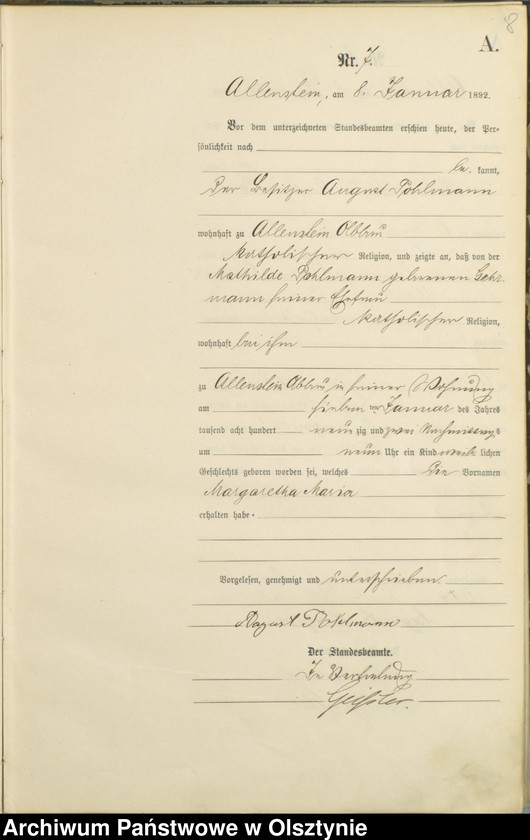 8
A.
Nr. 7.
Allenstein, am 8. Januar 1892.
Vor dem unterzeichneten Standesbeamten erschien heute, der Per-
sönlichkeit nach
be kannt,
der Besitzer August Pohlmann
wohnhaft zu Allenstein Abbau
katholischer Religion, und zeigte an, daß von der
Mathilde Pohlmann geborenen Gehr-
mann seiner Ehefrau
katholischer Religion,
wohnhaft bei ihm
zu Allenstein Abbau in seiner Wohnung
am sieben ten Januar des Jahres
tausend acht hundert neun zig und zwei Nachmittags
um neun Uhr ein Kind weib lichen
Geschlechts geboren worden sei, welches die Vornamen
Margaretha Maria
erhalten habe.
Vorgelesen, genehmigt und unterschrieben.
August Pohlmann
Der Standesbeamte.
In Vertretung
Archiwum Państwowe w Olsztynie